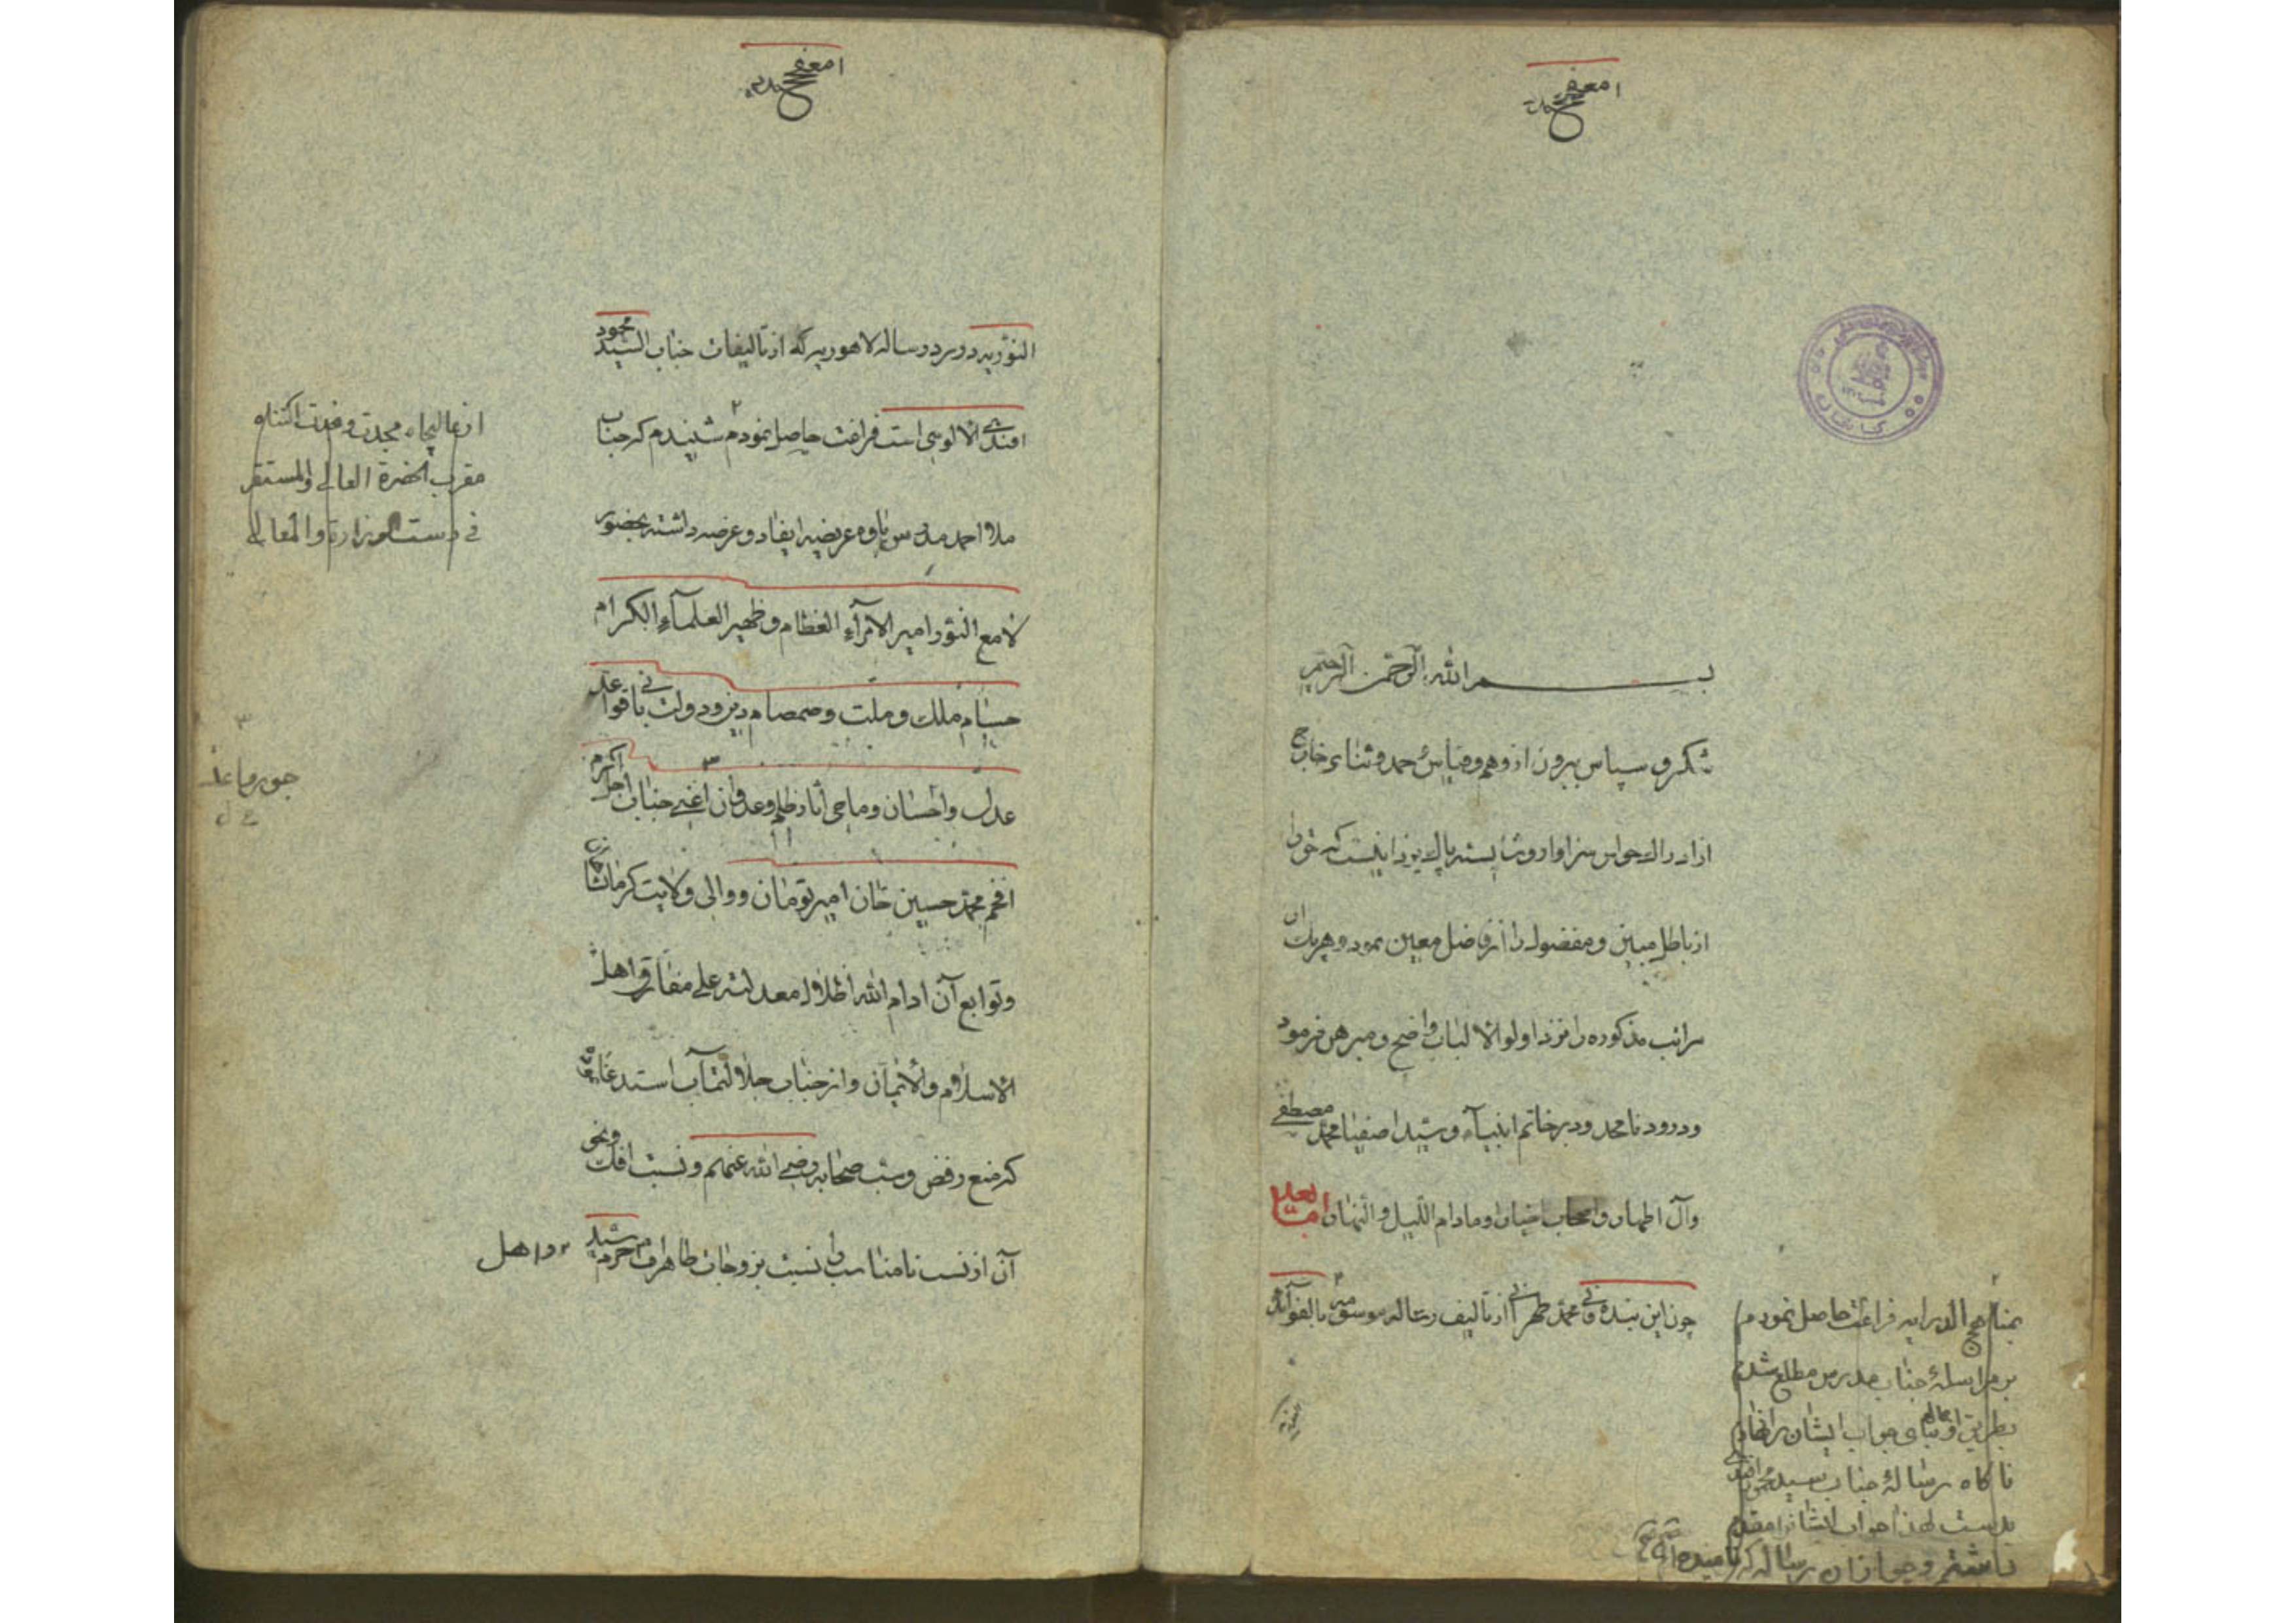 بسم الله الرحمن الرحیم
شکر و سپاس بیرون از وهم و قیاس و حمد و ثناء خارج
از ادراک حواس سزاوار و شایسته پاک یزدانیست که حق را
از باطل مبین و مفضول را از فاضل معین نمود و هریک از
مراتب مذکوره را نزد اولو الالباب واضح و مبرهن فرمود
و درود نامحدود بر خاتم انبیآء و سید اصفیا محمد مصطفی
وآل اطهار و اصحاب اخیار او مادام اللیل و النهار اما بعد
چون این بنده فانی محمد طهرانی از تألیف رساله موسومه بالفوائد
بمناهج الدرایه فراغت حاصل نمودم
بر مراسلهٔ جناب مدرس مطلع شدم
جواب ایشان را
ناکاه رسالهٔ جناب سید محمود افندی
بدست لهذا جواب ایشانرا مقدم
داشتم و جواب آن رساله که نامیده
النوریه در رد رساله لاهوریه که از تالیفات جناب السید محمود
افندی الالوسی است فراغت حاصل نمودم شنیدم که جناب
ملا احمد مدرس پاوه عریضه ایفاد و عرضه داشته بحضور
لامع النور امیر الامرآء العظام و ظهیر العلمآء الکرام
حسام ملک و ملت و صمصام دین و دولت بانی قواعد
عدل و احسان و ماحی آثار ظلم و عدوان اعنی جناب اجل اکرم
افخم محمد حسین خان امیر تومان و والی ولایت کرمانشاهان
و توابع آن ادام الله اظلال معدلته علی مفارق اهل
الاسلام والایمان و از جناب جلالتمآب استدعا
که منع رفض و سب صحابه رضی الله عنهم و نسبت افک و نحو
آن از نسب نامناسب را نسبت بزوجات طاهرات حرم سید
از عالیجاه مجدت و فخدت اکتناه
مقرب الحضرة العالی والمستقر
فی دست الوزارة والمعالی